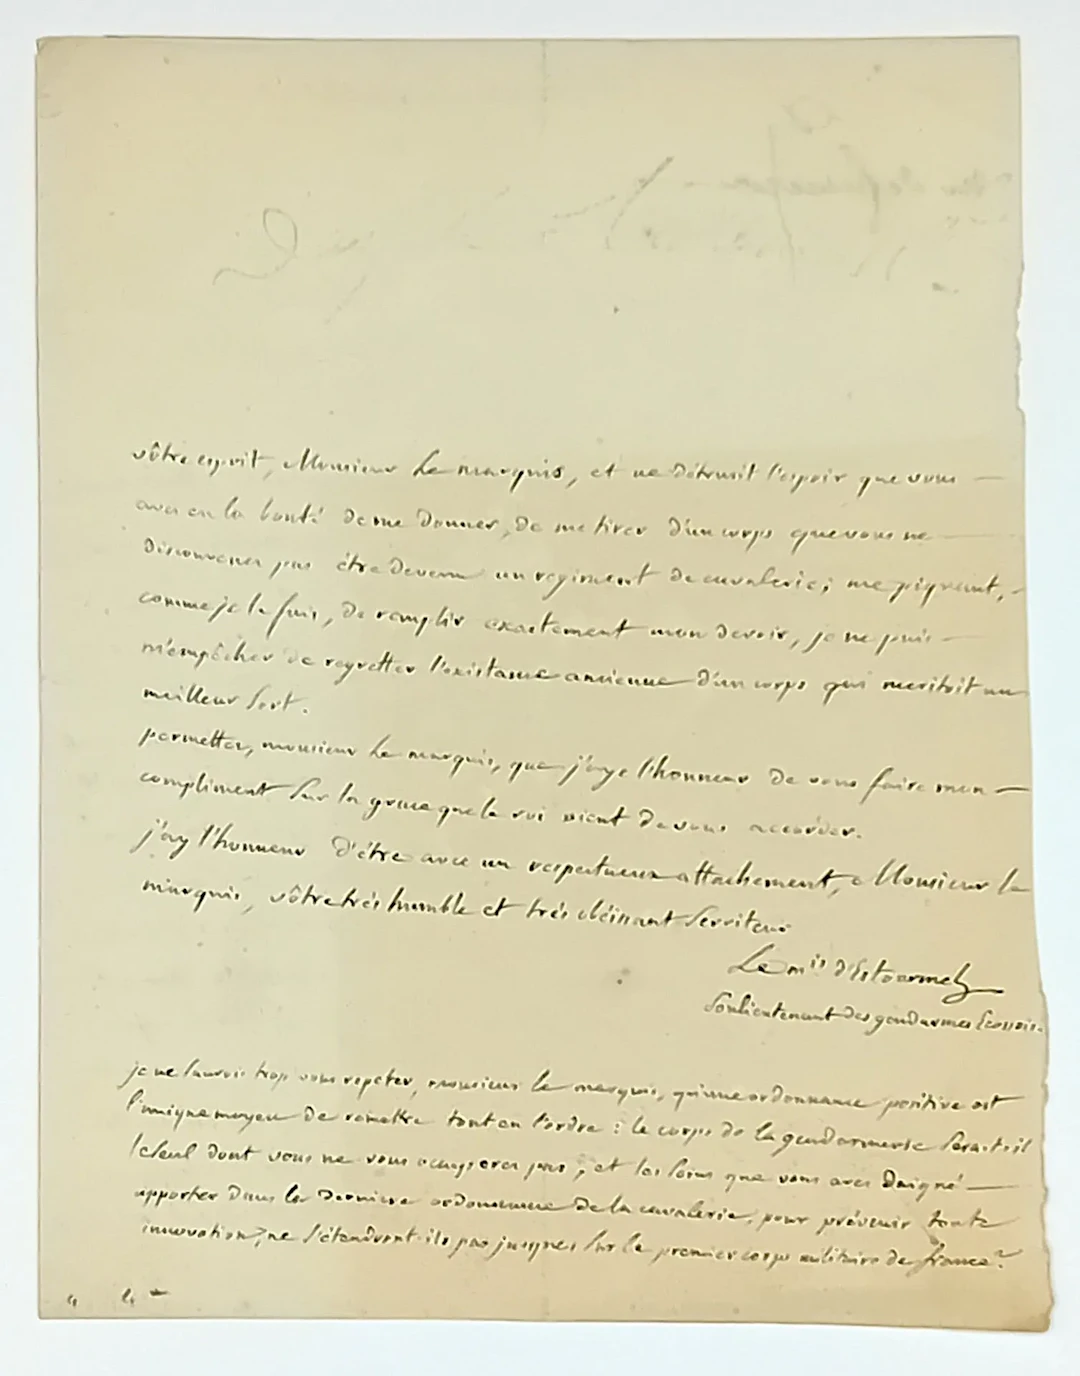 vôtre esprit, Monsieur Le marquis, et ne détruisit l'espoir que vous
avez eu la bonté de me donner, de me tirer d'un corps que vous ne
disconvenez pas être devenu un regiment de cavalerie; me piquant,
comme je le fais, de remplir exactement mon devoir, je ne puis
m'empêcher de regretter l'existance ancienne d'un corps qui meritoit un
meilleur sort.
permettez, monsieur Le marquis, que j'aye l'honneur de vous faire mon
compliment sur la grace que le roi vient de vous accorder.
j'ay l'honneur d'être avec un respectueux attachement, Monsieur le
marquis, vôtre trés humble et trés obéissant serviteur
Le mis d'Estourmel
Souslieutenant des gendarmes Ecossois.
je ne saurois trop vous repeter, monsieur le marquis, qu'une ordonnance positive est
l'unique moyen de remettre tout en l'ordre: le corps de la gendarmerie serait-il
le seul dont vous ne vous occuperez pas, et les soins que vous avez daigné
apporter dans la derniere ordonnance de la cavalerie, pour prévenir toute
innovation, ne s'étendront-ils pas jusques sur le premier corps militaire de france?